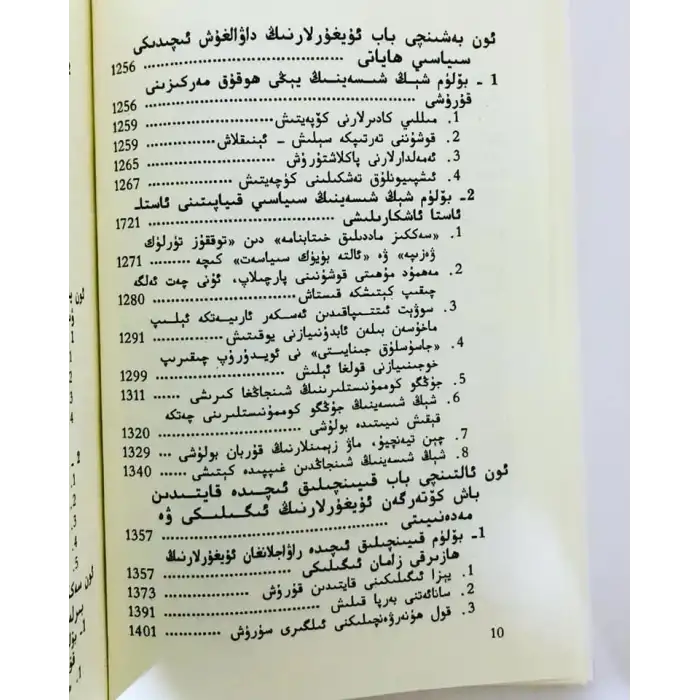 ئون بەشىنچى باب ئۇيغۇرلارنىڭ داۋالغۇش ئىچىدىكى
سىياسىي ھاياتى ........................ 1256
1 ـ بۆلۈم شېڭ شىسەينىڭ يېڭى ھوقۇق مەركىزىنى
قۇرۇشى ........................ 1256
1. مىللىي كادىرلارنى كۆپەيتىش ............ 1259
2. قوشۇننى تەرتىپكە سېلىش ـ ئېنىقلاش ...... 1259
3. ئەمەلدارلارنى پاكلاشتۇرۇش ............ 1265
4. ئىشپىيونلۇق تەشكىلىنى كۈچەيتىش ......... 1267
2ـ بۆلۈم شېڭ شىسەينىڭ سىياسىي قىياپىتىنى ئاستاـ
ئاستا ئاشكارىلىشى ........................ 1721
1. «سەككىز ماددىلىق خىتابنامە» دىن «توققۇز تۈرلۈك
ۋەزىپە» ۋە «ئالتە بۈيۈك سىياسەت» كىچە ......... 1271
2. مەھمۇد مۇھىتى قوشۇنىنى پارچىلاپ، ئۇنى چەت ئەلگە
چىقىپ كېتىشكە قىستاش ............ 1280
3. سوۋېت ئىتتىپاقىدىن ئەسكەر ئارىيەتكە ئېلىپ
ماخۇسەن بىلەن ئابدۇنىيازنى يوقىتىش ......... 1291
4. «جاسۇسلۇق جىنايىتى» نى ئويدۇرۇپ چىقىرىپ
خوجىنىيازنى قولغا ئېلىش ............ 1299
5. جۇڭگو كوممۇنىستلىرىنىڭ شىنجاڭغا كىرىشى ...... 1311
6. شېڭ شىسەينىڭ جۇڭگو كوممۇنىستلىرىنى چەتكە
قېقىش نىيىتىدە بولۇشى ............ 1320
7. چېن تيەنچيۇ، ماۋ زېمىنلارنىڭ قۇربان بولۇشى ... 1329
8. شېڭ شىسەينىڭ شىنجاڭدىن غىپپىدە كېتىشى ...... 1340
ئون ئالتىنچى باب قىيىنچىلىق ئىچىدە قايتىدىن
باش كۆتەرگەن ئۇيغۇرلارنىڭ ئىگىلىكى ۋە
مەدەنىيىتى ........................ 1357
1ـ بۆلۈم قىيىنچىلىق ئىچىدە راۋاجلانغان ئۇيغۇرلارنىڭ
ھازىرقى زامان ئىگىلىكى ............ 1357
1. يېزا ئىگىلىكىنى قايتىدىن قۇرۇش ............ 1373
2. سانائەتنى بەرپا قىلىش ............ 1391
3. قول ھۈنەرۋەنچىلىكنى ئىلگىرى سۈرۈش ............ 1401
10